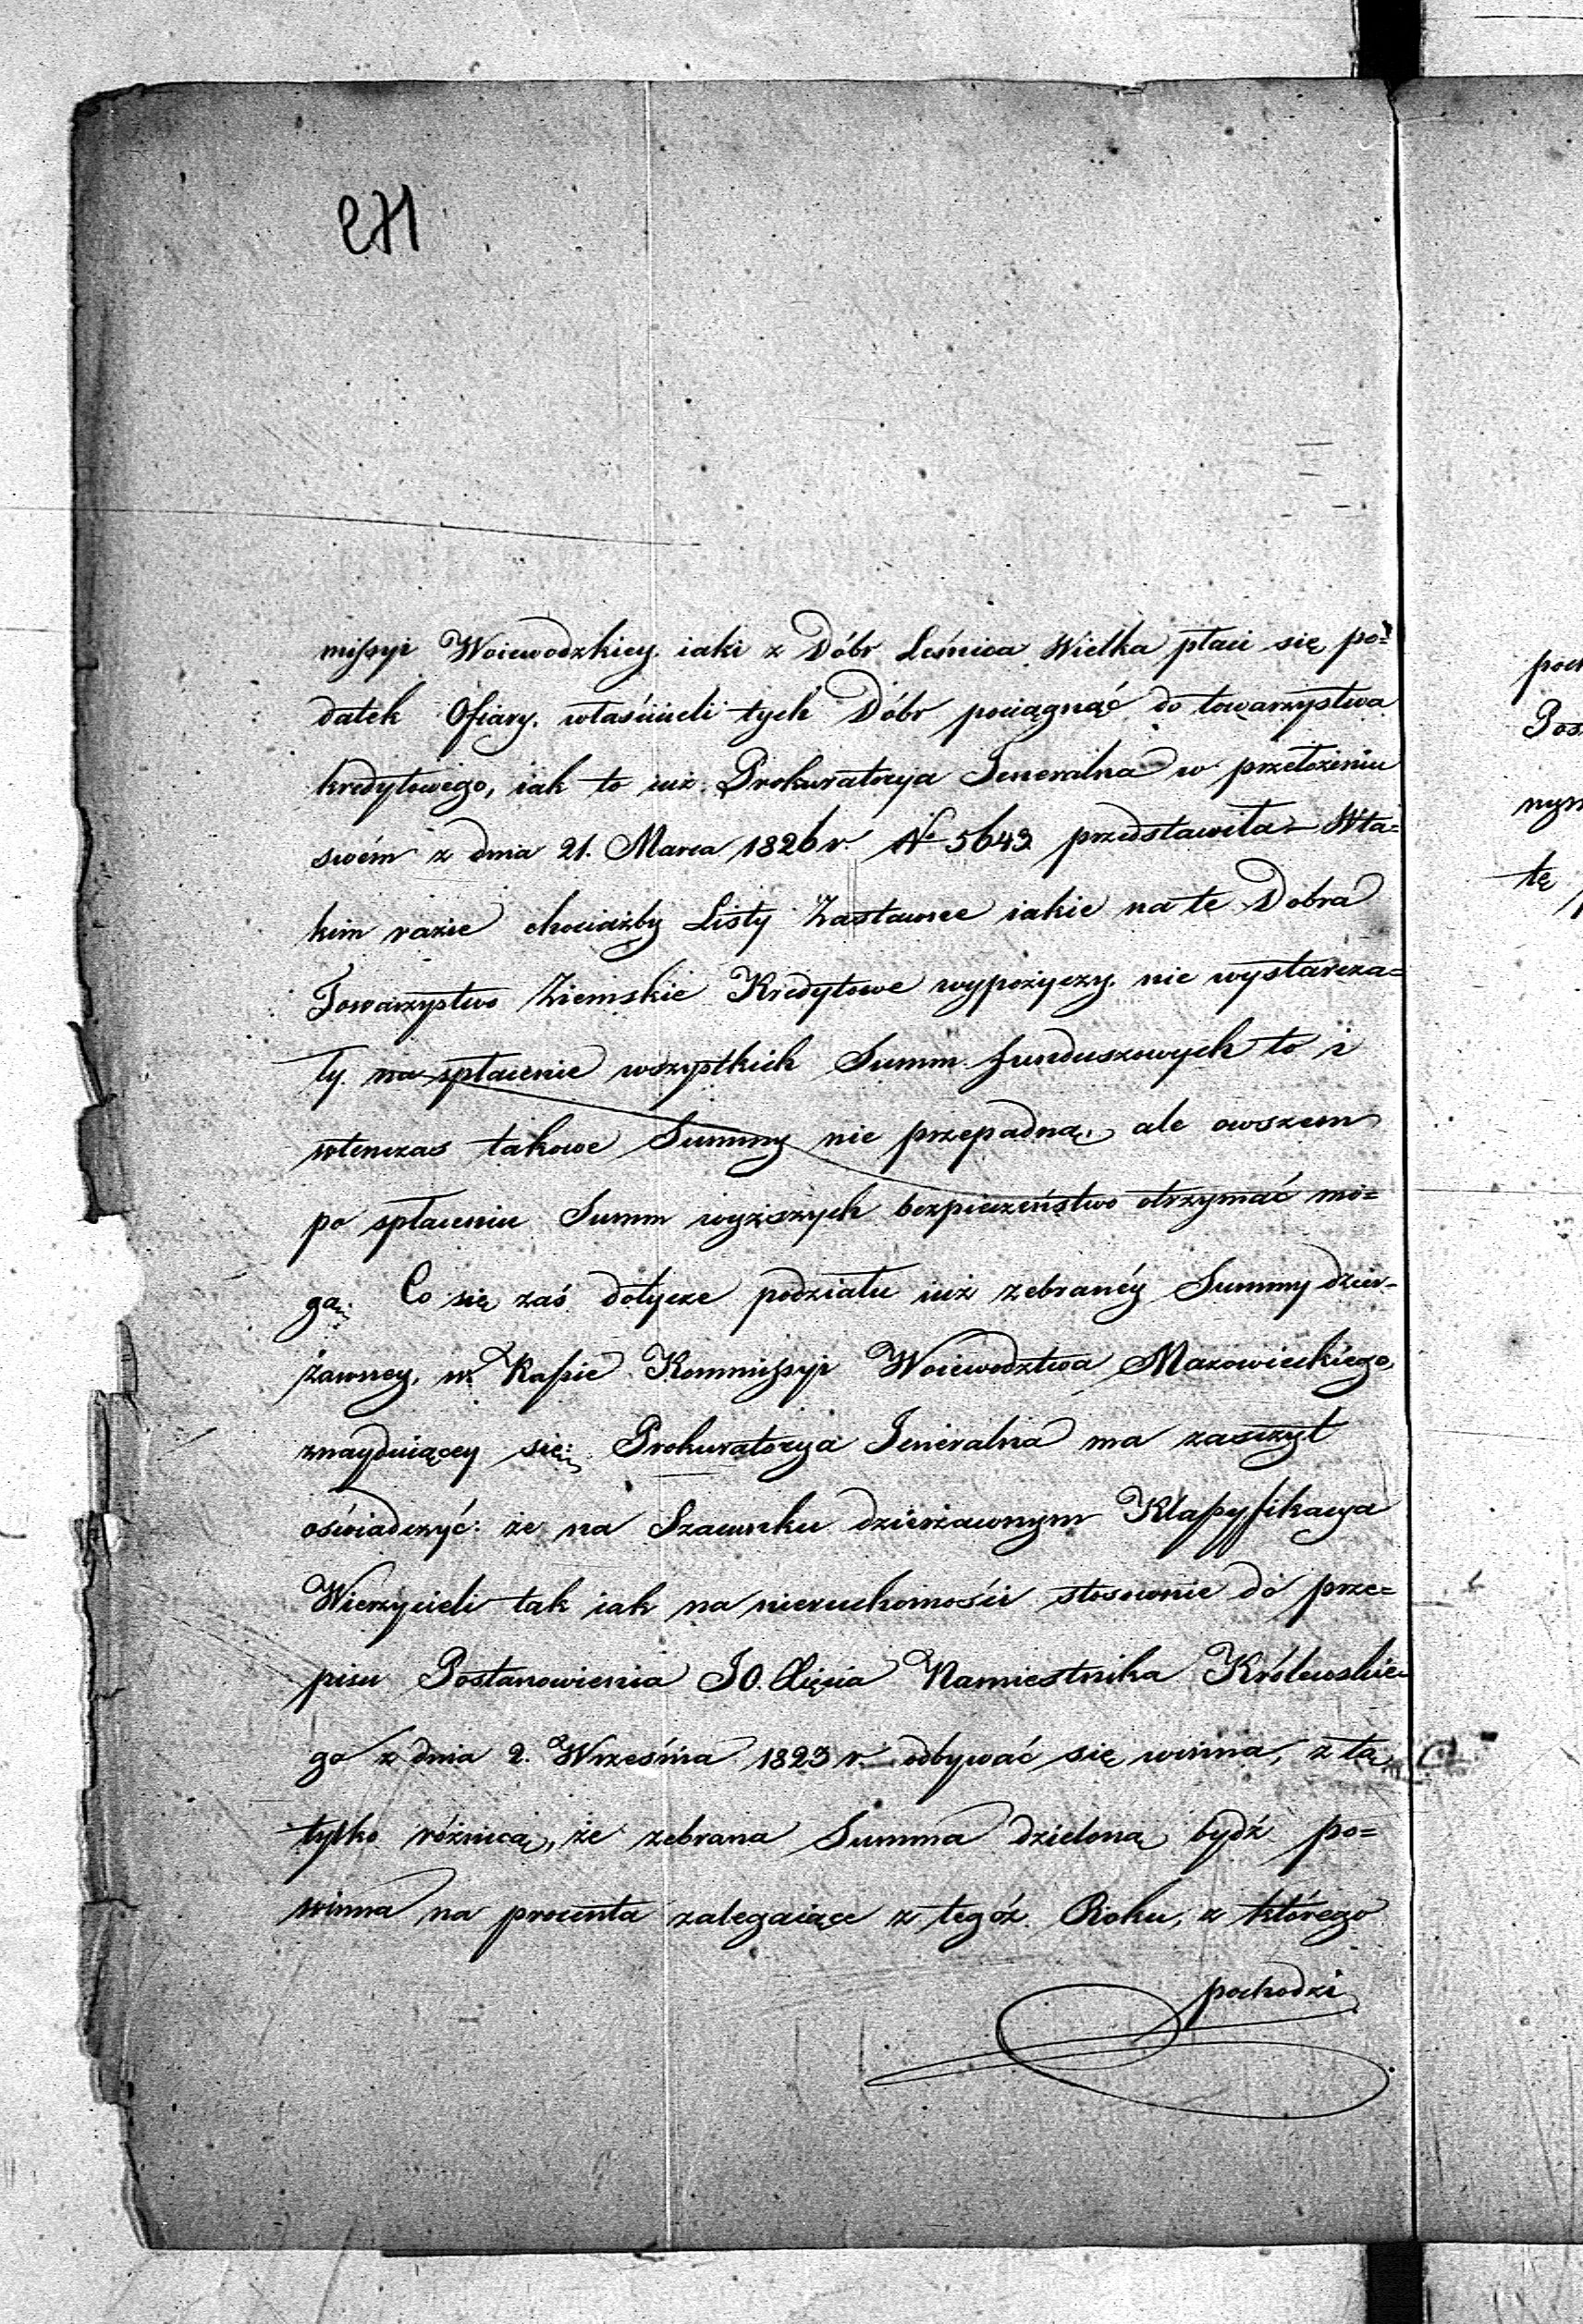 271
missyi Woiewodzkiey iaki z Dóbr Leśnica Wielka płaci się po=
datek Ofiary, właścicieli tych Dóbr pociągnąć do towarzystwa
kredytowego, iak to iuż Prokuratorya Jeneralna w przełożeniu
swém z dnia 21. Marca 1826 r No 5643 przedstawiła – W ta=
kim razie chociażby Listy Zastawne iakie na te Dobra
Towarzystwo Ziemskie Kredytowe wypożyczy, nie wystarcza=
ły na spłacenie wszystkich Summ funduszowych to i
wtenczas takowe Summy nie przepadną, ale owszem
po spłaceniu Summ wyższych bezpieczeństwo otrzymać mo=
gą. Co się zaś dotycze podziału iuż zebranéy Summy dzier=
żawney, w Kassie Kommissyi Woiewodztwa Mazowieckiego
znayduiącey się; Prokuratorya Jeneralna ma zaszczyt
oświadczyć: że na Szacunku dzierżawnym Klassyfikacya
Wierzycieli tak iak na nieruchomości stosownie do prze=
pisu Postanowienia JO. Xięcia Namiestnika Królewskie
go z dnia 2. Września 1823 r. odbywać się winna, z tą
tylko różnicą, że zebrana Summa dzieloną bydź po=
winna na procenta zalegaiące z tegóż Roku, z którego
pochodzi
poch
Pos
nym
tę